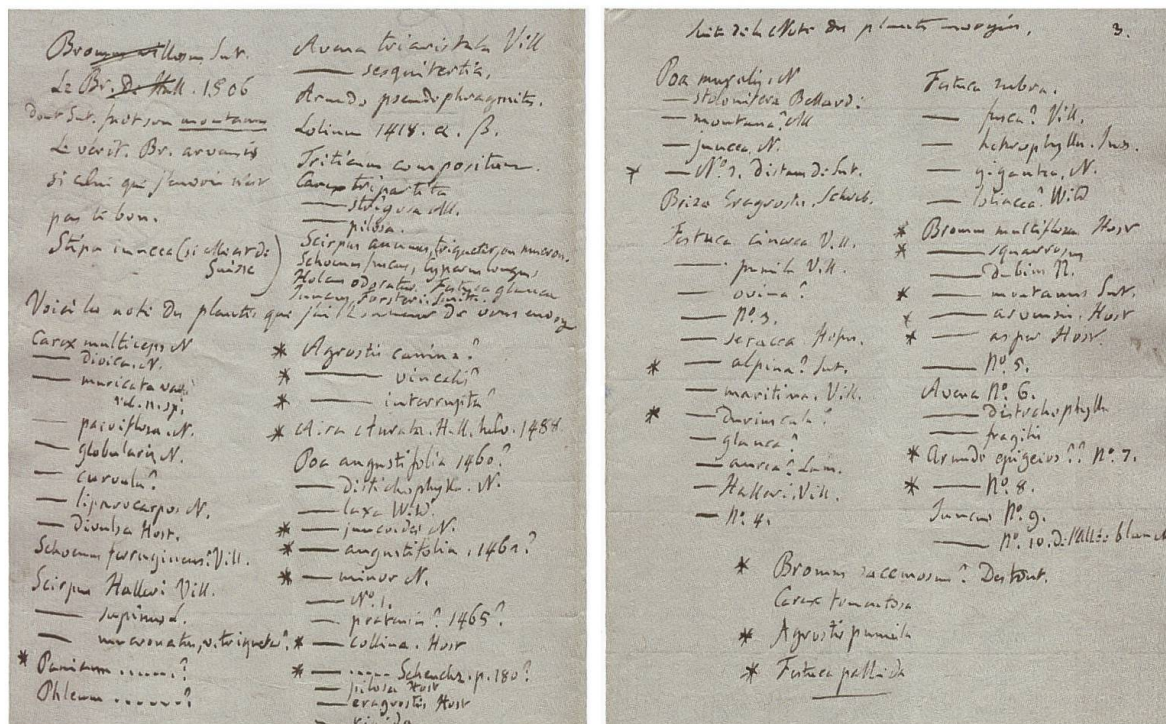 Bromus villosus, Sut.
Le Br. De Hall. 1506
dont Sut. fait son montanus
Le vérit. Br. arvensis
si celui que j'envoie n'est
pas le bon.
Stipa juncea (si elle est de
Suisse)
Avena triaristata Vill
—— sesquitertia,
Arundo pseudophragmites.
Lolium 1418. α. β.
Triticum compositum.
Carex tripartita
—— strigosa All.
—— pilosa.
Scirpus annuus, triqueter, mucron.
Schoenus fuscus, Cyperus longus,
Holcus odoratus. Festuca glauca
Juncus Forsteri. Smith.
Voici la note des plantes que j'ai l'honneur de vous envoyer
Carex multiceps N
—— dioica. N.
—— muricata
vel. n. sp.
—— parviflora. N.
—— globularis N.
—— curvula?
—— leporocarpos N.
—— divulsa Host.
Schoenus ferrugineus? Vill.
Scirpus Halleri Vill.
—— supinus L.
—— mucronatus, v. triqueter?
* Panicum ......?
Phleum ......?
* Agrostis canina?
* ——
* —— interrupta?
* Aira Hall. helv. 1488
Poa angustifolia 1460?
—— distichophylla. N.
—— laxa W.W.
* —— juncoides N.
* —— angustifolia. 1461?
* —— minor N.
—— No. 1.
—— pratensis? 1465?
* —— collina. Host
* —— ..... Scheuchz. p. 180?
—— pilosa Host
—— eragrostis Host
—— rigida
Suite de la Note des plantes 3.
Poa muralis. N
—— stolonifera Bellardi.
—— montana? All
—— juncea. N.
* —— No. 2. Distans Di. Sut.
Briza Eragrostis. Schreb.
Festuca cinerea Vill.
—— pumila Vill.
—— ovina?
—— No. 3.
—— Hopn.
* —— alpina? Sut.
—— maritima. Vill.
* —— duriuscula?
—— glauca?
—— aurea? Lam.
—— Halleri. Vill.
—— No. 4.
Festuca rubra.
—— fusca? Vill.
—— heterophylla.
—— gigantea, N.
—— loliacea? Wild
* Bromus multiflorus Host
* —— squarrosus
—— dubius N.
* —— montanus Sut.
* —— arvensis. Host
* —— asper Host.
—— No. 5.
Avena No. 6.
—— distichophylla
—— fragilis
* Arundo epigeios?? No. 7.
* —— No. 8.
Juncus No. 9.
—— No. 10. De l'allée blanche
* Bromus racemosus? Desfont.
Carex tomentosa
* Agrostis pumila
* Festuca pallida